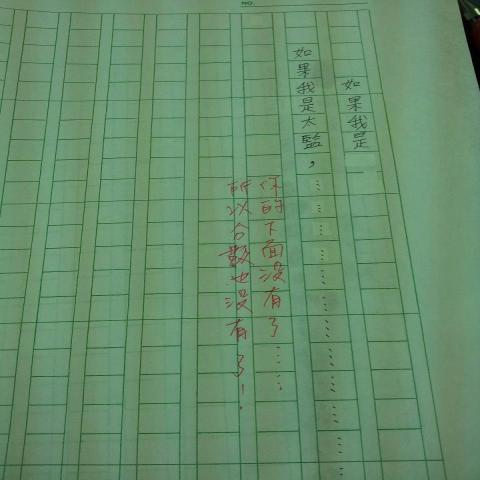 NO.
如果我是
如果我是太監，…………………………
你的下面沒有了……
所以分數也沒有了！